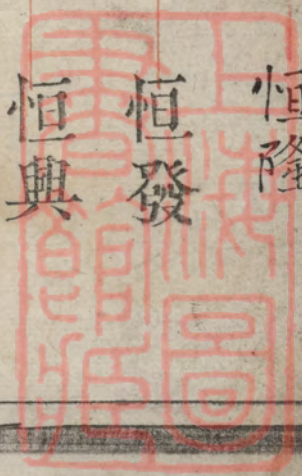 恒隆
恒發
恒興
上海圖
書館藏